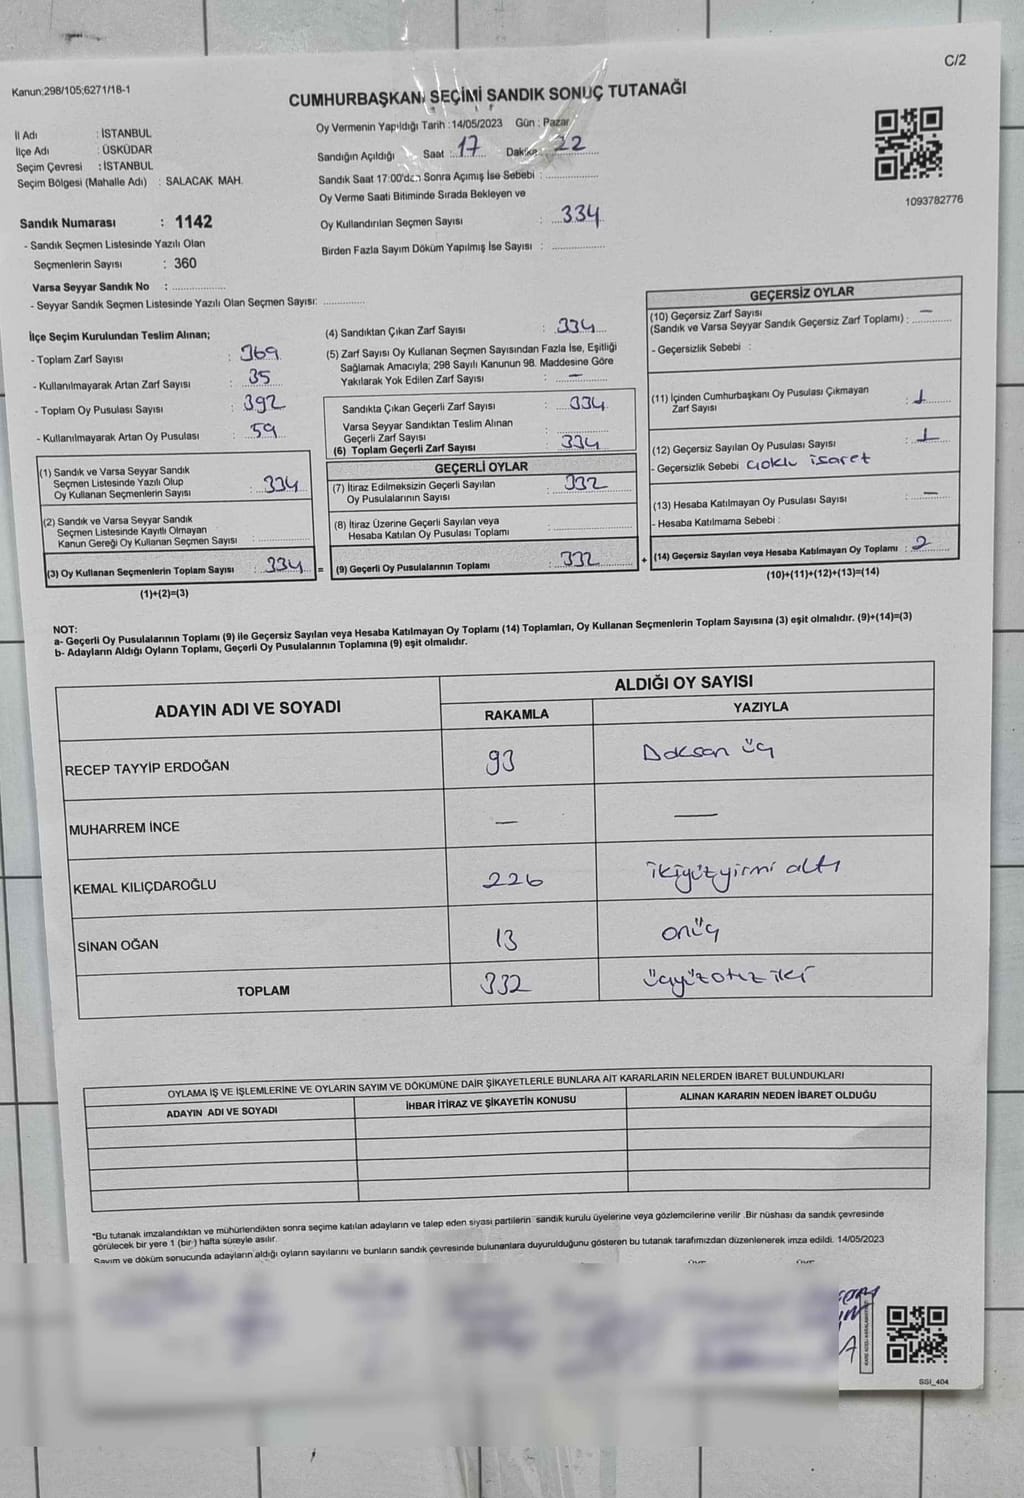 C/2
Kanun:298/105;6271/18-1
CUMHURBAŞKANI SEÇİMİ SANDIK SONUÇ TUTANAĞI
İl Adı : İSTANBUL
İlçe Adı : ÜSKÜDAR
Seçim Çevresi : İSTANBUL
Seçim Bölgesi (Mahalle Adı) : SALACAK MAH.
Oy Vermenin Yapıldığı Tarih :14/05/2023 Gün : Pazar
Sandığın Açıldığı Saat : 17 Dakika 22
Sandık Saat 17:00'dan Sonra Açımış İse Sebebi :
Oy Verme Saati Bitiminde Sırada Bekleyen ve
Oy Kullandırılan Seçmen Sayısı : 334
Birden Fazla Sayım Döküm Yapılmış İse Sayısı :
1093782776
Sandık Numarası : 1142
- Sandık Seçmen Listesinde Yazılı Olan
Seçmenlerin Sayısı : 360
Varsa Seyyar Sandık No :
- Seyyar Sandık Seçmen Listesinde Yazılı Olan Seçmen Sayısı:
İlçe Seçim Kurulundan Teslim Alınan;
- Toplam Zarf Sayısı : 369
- Kullanılmayarak Artan Zarf Sayısı : 35
- Toplam Oy Pusulası Sayısı : 392
- Kullanılmayarak Artan Oy Pusulası : 59
(1) Sandık ve Varsa Seyyar Sandık
Seçmen Listesinde Yazılı Olup
Oy Kullanan Seçmenlerin Sayısı : 334
(2) Sandık ve Varsa Seyyar Sandık
Seçmen Listesinde Kayıtlı Olmayan
Kanun Gereği Oy Kullanan Seçmen Sayısı :
(3) Oy Kullanan Seçmenlerin Toplam Sayısı : 334 =
(1)+(2)=(3)
(4) Sandıktan Çıkan Zarf Sayısı : 334
(5) Zarf Sayısı Oy Kullanan Seçmen Sayısından Fazla İse, Eşitliği
Sağlamak Amacıyla; 298 Sayılı Kanunun 98. Maddesine Göre
Yakılarak Yok Edilen Zarf Sayısı : —
Sandıkta Çıkan Geçerli Zarf Sayısı : 334
Varsa Seyyar Sandıktan Teslim Alınan
Geçerli Zarf Sayısı :
(6) Toplam Geçerli Zarf Sayısı : 334
GEÇERLİ OYLAR
(7) İtiraz Edilmeksizin Geçerli Sayılan
Oy Pusulalarının Sayısı : 332
(8) İtiraz Üzerine Geçerli Sayılan veya
Hesaba Katılan Oy Pusulası Toplamı :
(9) Geçerli Oy Pusulalarının Toplamı : 332 +
GEÇERSİZ OYLAR
(10) Geçersiz Zarf Sayısı
(Sandık ve Varsa Seyyar Sandık Geçersiz Zarf Toplamı) : —
- Geçersizlik Sebebi :
(11) İçinden Cumhurbaşkanı Oy Pusulası Çıkmayan
Zarf Sayısı : 1
(12) Geçersiz Sayılan Oy Pusulası Sayısı : 1
- Geçersizlik Sebebi çoklu işaret
(13) Hesaba Katılmayan Oy Pusulası Sayısı : —
- Hesaba Katılmama Sebebi :
(14) Geçersiz Sayılan veya Hesaba Katılmayan Oy Toplamı : 2
(10)+(11)+(12)+(13)=(14)
NOT:
a- Geçerli Oy Pusulalarının Toplamı (9) ile Geçersiz Sayılan veya Hesaba Katılmayan Oy Toplamı (14) Toplamları, Oy Kullanan Seçmenlerin Toplam Sayısına (3) eşit olmalıdır. (9)+(14)=(3)
b- Adayların Aldığı Oyların Toplamı, Geçerli Oy Pusulalarının Toplamına (9) eşit olmalıdır.
ADAYIN ADI VE SOYADI
ALDIĞI OY SAYISI
RAKAMLA YAZIYLA
RECEP TAYYİP ERDOĞAN 93 Doksan üç
MUHARREM İNCE — —
KEMAL KILIÇDAROĞLU 226 ikiyüzyirmi altı
SİNAN OĞAN 13 onüç
TOPLAM 332 üçyüzotuz iki
OYLAMA İŞ VE İŞLEMLERİNE VE OYLARIN SAYIM VE DÖKÜMÜNE DAİR ŞİKAYETLERLE BUNLARA AİT KARARLARIN NELERDEN İBARET BULUNDUKLARI
ADAYIN ADI VE SOYADI İHBAR İTİRAZ VE ŞİKAYETİN KONUSU ALINAN KARARIN NEDEN İBARET OLDUĞU
"Bu tutanak imzalandıktan ve mühürlendikten sonra seçime katılan adayların ve talep eden siyasi partilerin sandık kurulu üyelerine veya gözlemcilerine verilir .Bir nüshası da sandık çevresinde
görülecek bir yere 1 (bir ) hafta süreyle asılır.
Sayım ve döküm sonucunda adayların aldığı oyların sayılarını ve bunların sandık çevresinde bulunanlara duyurulduğunu gösteren bu tutanak tarafımızdan düzenlenerek imza edildi. 14/05/2023
SSI_404